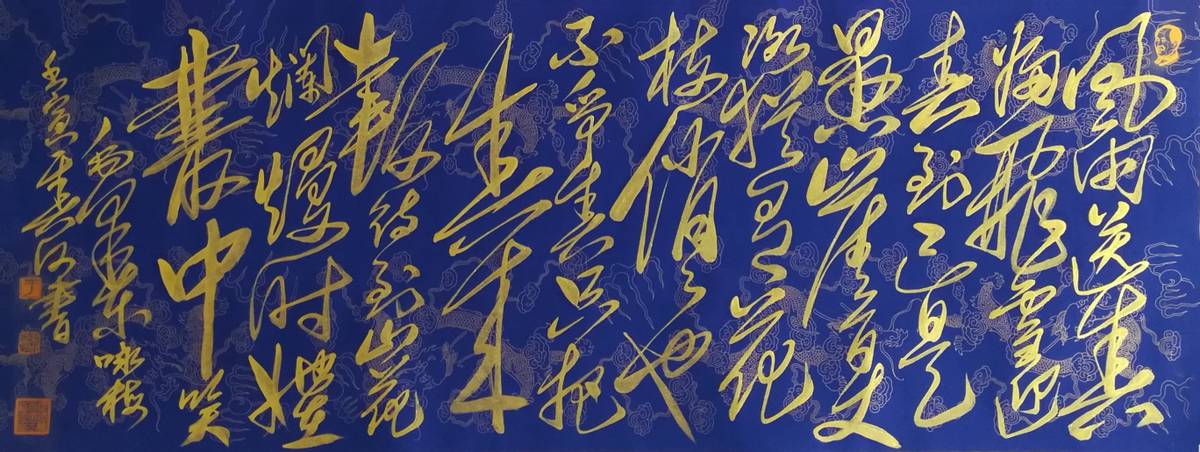 風雨送春
歸飛雪迎
春到已是
懸崖百丈
冰猶有花
枝俏〻也
不爭春只把
春来
報待到山花
爛熳时她在
叢中笑
咏梅
壬寅春书